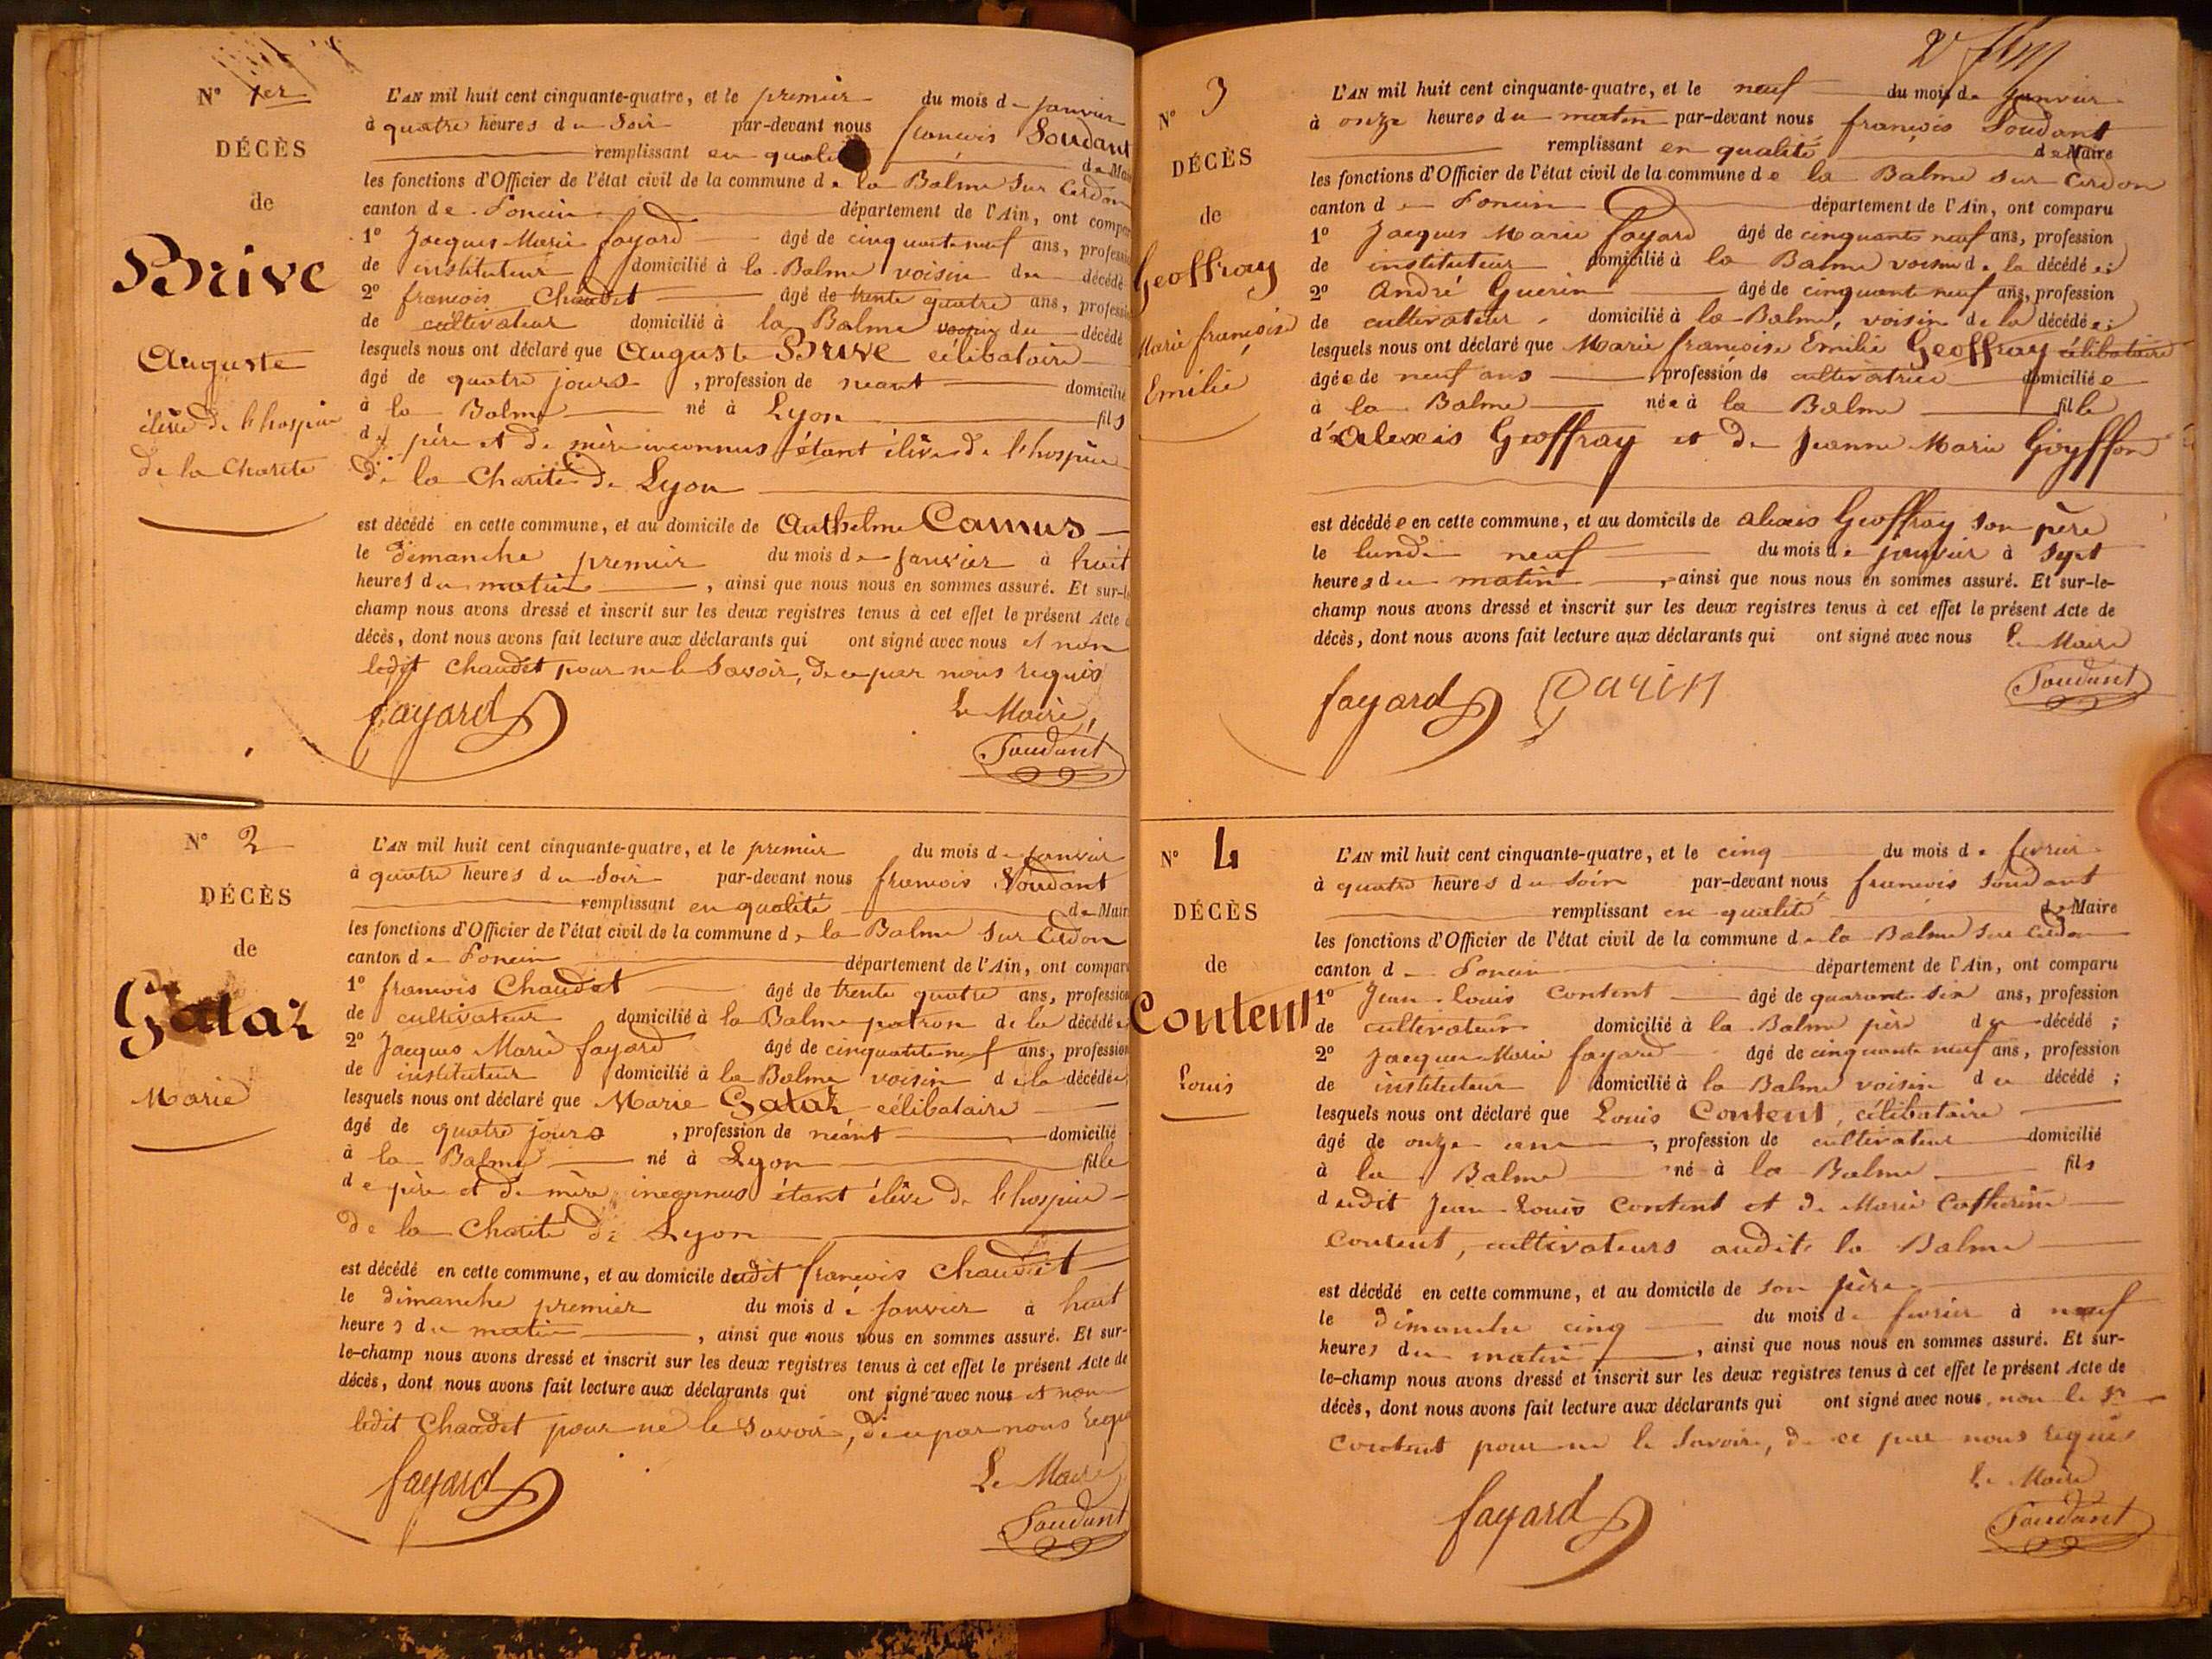 N° 1er
DÉCÈS
de
Brive
Auguste
élève de l'hospice
de la Charité
L'AN mil huit cent cinquante-quatre, et le premier du mois de janvier
à quatre heures du soir par-devant nous françois Soudant
remplissant en qualité de Maire
les fonctions d'Officier de l'état civil de la commune de la Balme sur Cerdon
canton de Poncin département de l'Ain, ont comparu
1° Jacques Marie fayard âgé de cinquante neuf ans, profession
de instituteur domicilié à la Balme voisin du décédé
2° françois Chaudet âgé de trente quatre ans, profession
de cultivateur domicilié à la Balme voisin du décédé
lesquels nous ont déclaré que Auguste Brive célibataire
âgé de quatre jours , profession de néant domicilié
à la Balme né à Lyon fils
de père et de mère inconnus étant élève de l'hospice
de la Charité de Lyon
est décédé en cette commune, et au domicile de Anthelme Camus
le dimanche premier du mois de janvier à huit
heures du matin , ainsi que nous nous en sommes assuré. Et sur-le
champ nous avons dressé et inscrit sur les deux registres tenus à cet effet le présent Acte
décès, dont nous avons fait lecture aux déclarants qui ont signé avec nous et non
ledit Chaudet pour ne le savoir, de ce par nous requis
fayard
Le Maire,
Soudant
N° 2
DÉCÈS
de
Gataz
Marie
L'AN mil huit cent cinquante-quatre, et le premier du mois de janvier
à quatre heures du soir par-devant nous françois Soudant
remplissant en qualité de Maire
les fonctions d'Officier de l'état civil de la commune de la Balme sur Cerdon
canton de Poncin département de l'Ain, ont comparu
1° françois Chaudet âgé de trente quatre ans, profession
de cultivateur domicilié à la Balme patron de la décédée
2° Jacques Marie fayard âgé de cinquante neuf ans, profession
de instituteur domicilié à la Balme voisin de la décédée
lesquels nous ont déclaré que Marie Gataz célibataire
âgé de quatre jours , profession de néant domicilié
à la Balme né à Lyon fille
de père et de mère inconnus étant élève de l'hospice
de la Charité de Lyon
est décédé en cette commune, et au domicile dudit françois Chaudet
le dimanche premier du mois de janvier à huit
heures du matin , ainsi que nous nous en sommes assuré. Et sur-
le-champ nous avons dressé et inscrit sur les deux registres tenus à cet effet le présent Acte de
décès, dont nous avons fait lecture aux déclarants qui ont signé avec nous et non
ledit Chaudet pour ne le savoir, de ce par nous requi
fayard
Le Maire
Soudant
N° 3
DÉCÈS
de
Geoffray
Marie françoise
Emilie
L'AN mil huit cent cinquante-quatre, et le neuf du mois de janvier
à onze heures du matin par-devant nous françois Soudant
remplissant en qualité de Maire
les fonctions d'Officier de l'état civil de la commune de la Balme sur Cerdon
canton de Poncin département de l'Ain, ont comparu
1° Jacques Marie fayard âgé de cinquante neuf ans, profession
de instituteur domicilié à la Balme voisin de la décédée;
2° André Guerin âgé de cinquante neuf ans, profession
de cultivateur domicilié à la Balme, voisin de la décédée;
lesquels nous ont déclaré que Marie françoise Emilie Geoffray célibataire
âgée de neuf ans , profession de cultivatrice domiciliée
à la Balme née à la Balme fille
d'Alexis Geoffray et de Jeanne Marie Goyffon
est décédée en cette commune, et au domicile de alexis Geoffray son père
le lundi neuf du mois de janvier à sept
heures du matin , ainsi que nous nous en sommes assuré. Et sur-le-
champ nous avons dressé et inscrit sur les deux registres tenus à cet effet le présent Acte de
décès, dont nous avons fait lecture aux déclarants qui ont signé avec nous Le Maire
fayard
Soudant
N° 4
DÉCÈS
de
Content
Louis
L'AN mil huit cent cinquante-quatre, et le cinq du mois de fevrier
à quatre heures du soir par-devant nous françois Soudant
remplissant en qualité de Maire
les fonctions d'Officier de l'état civil de la commune de la Balme sur Cerdon
canton de Poncin département de l'Ain, ont comparu
1° Jean-Louis Content âgé de quarante six ans, profession
de cultivateur domicilié à la Balme père du décédé ;
2° Jacques Marie fayard âgé de cinquante neuf ans, profession
de instituteur domicilié à la Balme voisin du décédé ;
lesquels nous ont déclaré que Louis Content, célibataire
âgé de onze ans , profession de cultivateur domicilié
à la Balme né à la Balme fils
dudit Jean-Louis Content et de Marie Catherine
Content, cultivateurs audit la Balme
est décédé en cette commune, et au domicile de son père
le dimanche cinq du mois de fevrier à neuf
heures du matin , ainsi que nous nous en sommes assuré. Et sur-
le-champ nous avons dressé et inscrit sur les deux registres tenus à cet effet le présent Acte de
décès, dont nous avons fait lecture aux déclarants qui ont signé avec nous, non le Sr
Content pour ne le savoir, de ce par nous requis
Le Maire
fayard
Soudant